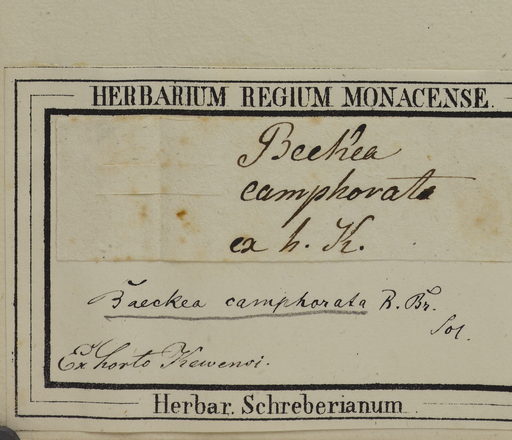 HERBARIUM REGIUM MONACENSE.
Beckea
camphorata
ex h. K.
Baeckea camphorata R. Br.
Sol.
Ex horto Kewensi.
Herbar. Schreberianum